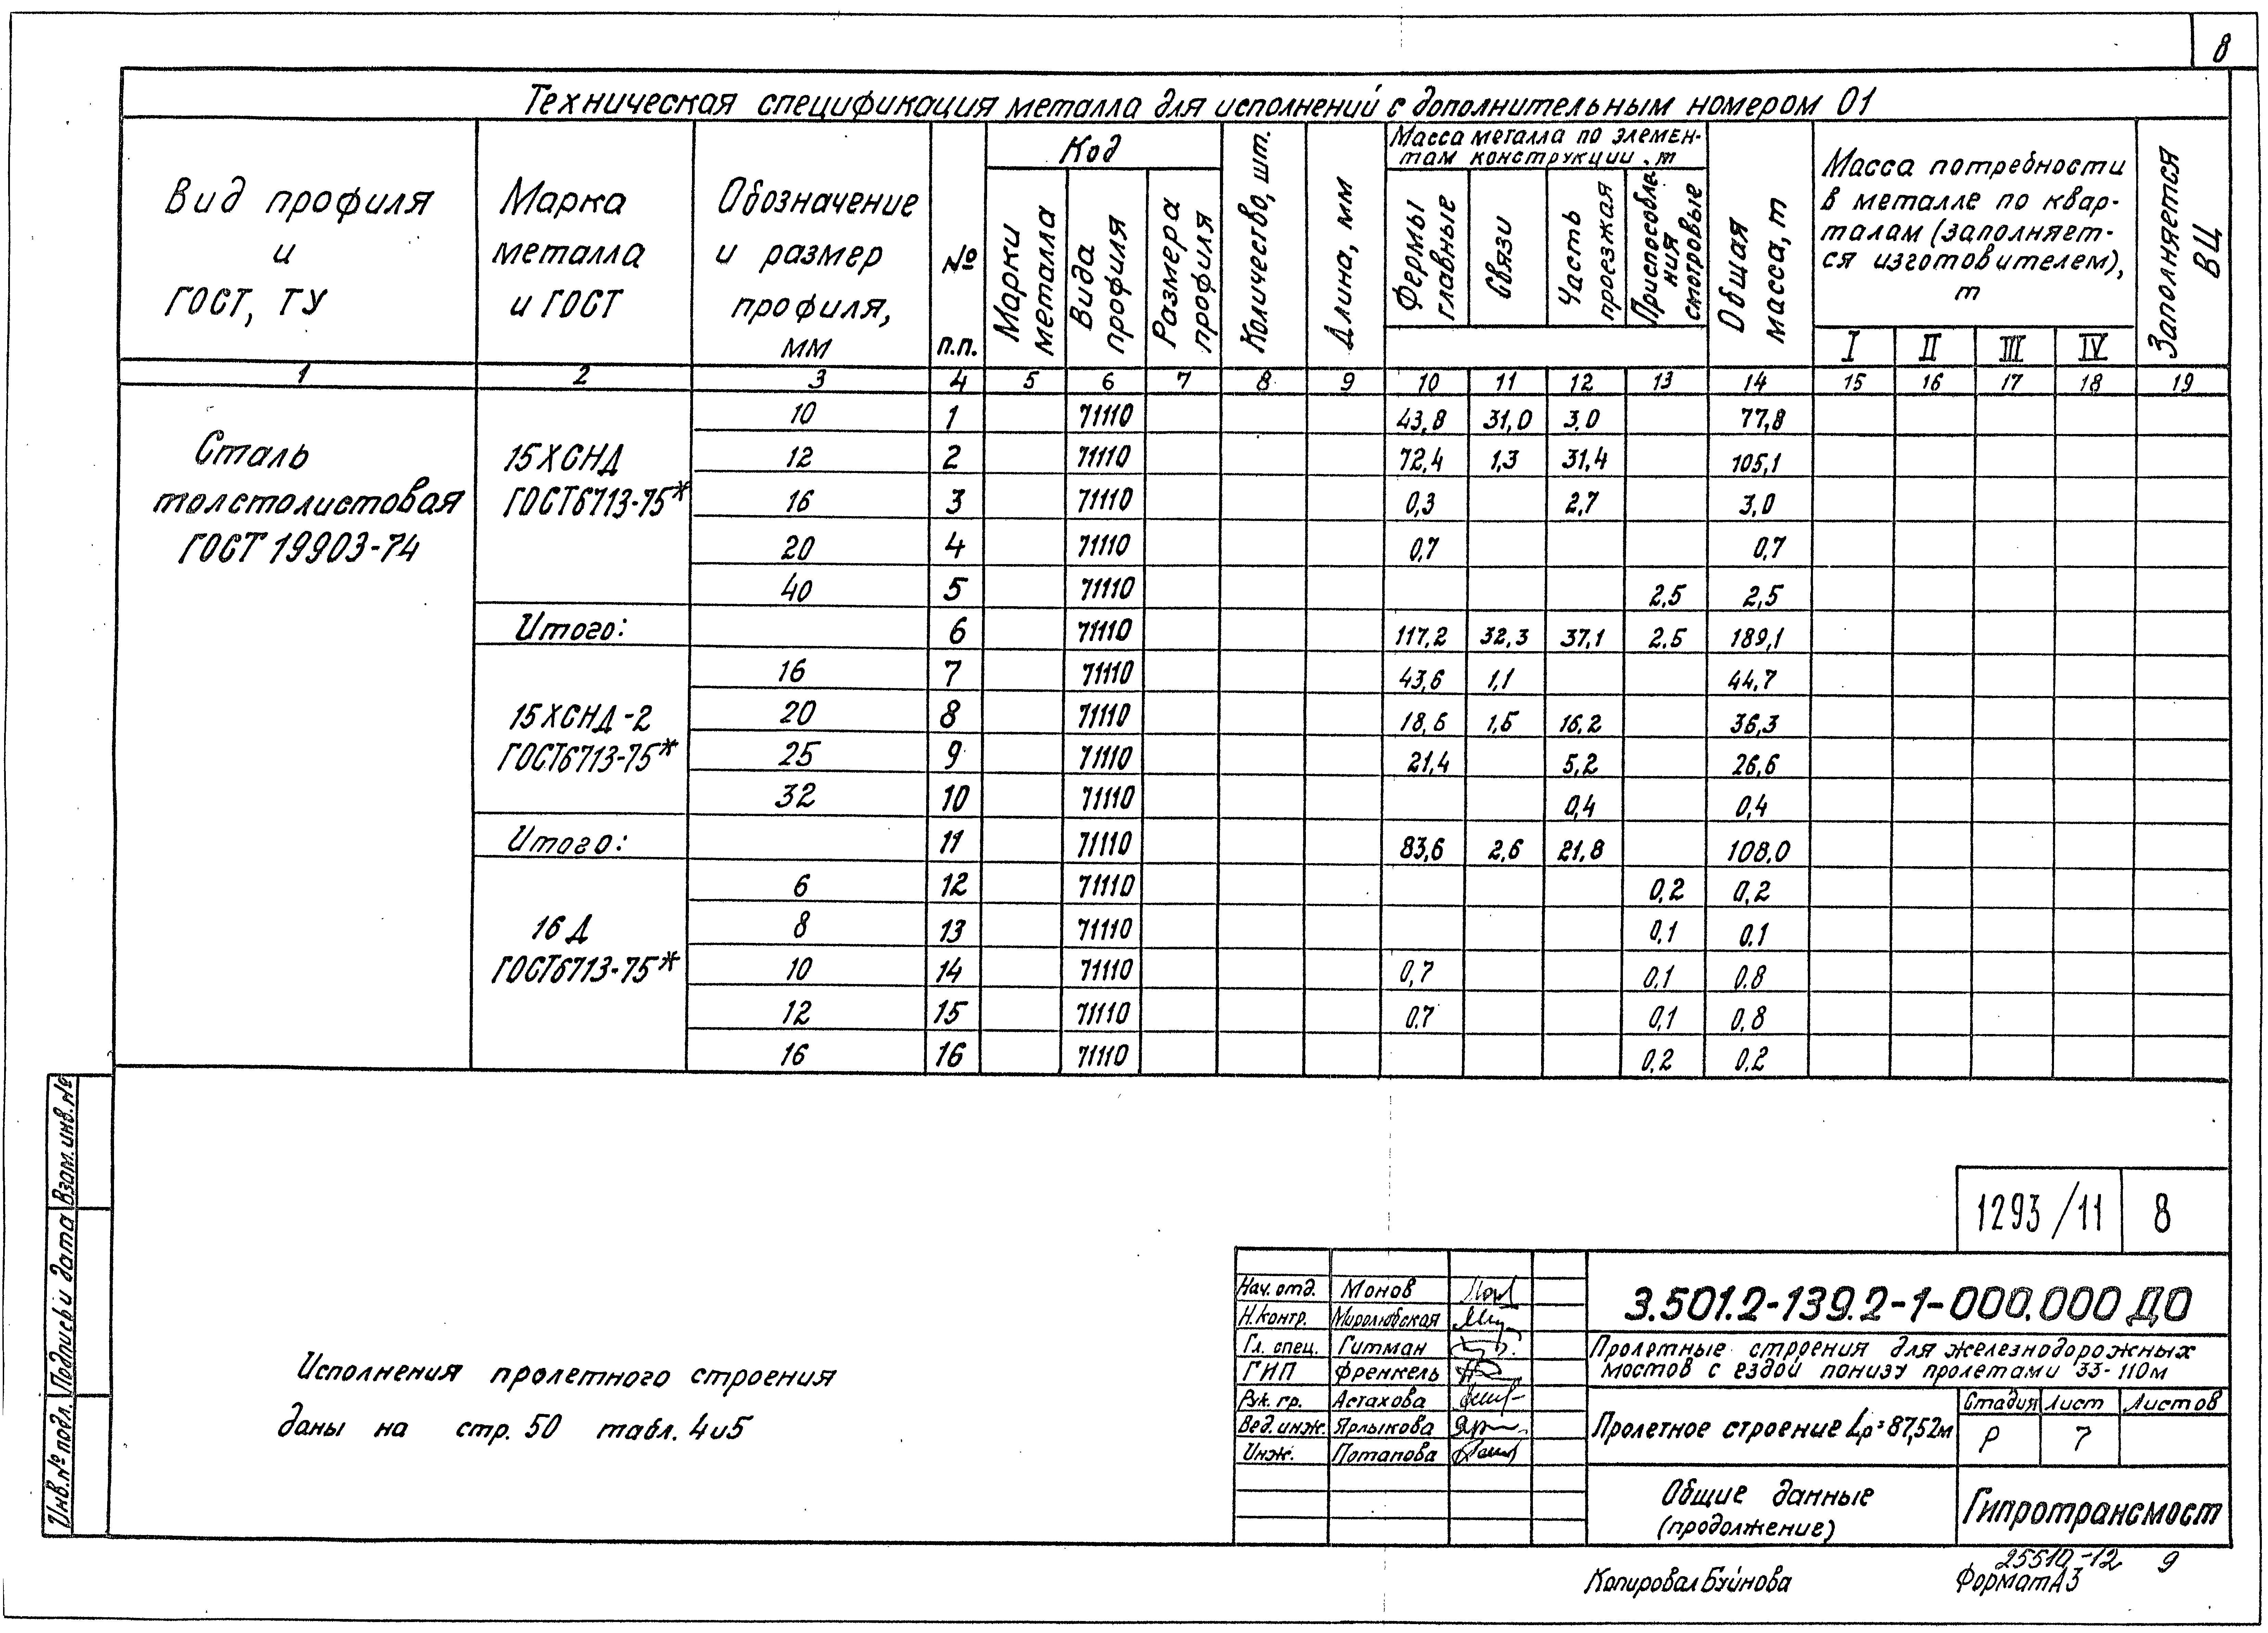 8
Техническая спецификация металла для исполнений с дополнительным номером 01
Вид профиля
и
ГОСТ, ТУ
Марка
металла
и ГОСТ
Обозначение
и размер
профиля,
мм
№
п.п.
Код
Марки
металла
Вида
профиля
Размера
профиля
Количество, шт.
Длина, мм
Масса металла по элемен-
там конструкции, т
Фермы
главные
Связи
Часть
проезжая
Приспособле-
ния
смотровые
Общая
масса, т
Масса потребности
в металле по квар-
талам (заполняет-
ся изготовителем),
т
I II III IV
Заполняется
ВЦ
1 2 3 4 5 6 7 8 9 10 11 12 13 14 15 16 17 18 19
Сталь
толстолистовая
ГОСТ 19903-74
15ХСНД
ГОСТ6713-75*
10 1 71110 43,8 31,0 3,0 77,8
12 2 71110 72,4 1,3 31,4 105,1
16 3 71110 0,3 2,7 3,0
20 4 71110 0,7 0,7
40 5 71110 2,5 2,5
Итого: 6 71110 117,2 32,3 37,1 2,5 189,1
15ХСНД-2
ГОСТ6713-75*
16 7 71110 43,6 1,1 44,7
20 8 71110 18,6 1,5 16,2 36,3
25 9 71110 21,4 5,2 26,6
32 10 71110 0,4 0,4
Итого: 11 71110 83,6 2,6 21,8 108,0
16Д
ГОСТ6713-75*
6 12 71110 0,2 0,2
8 13 71110 0,1 0,1
10 14 71110 0,7 0,1 0,8
12 15 71110 0,7 0,1 0,8
16 16 71110 0,2 0,2
Взам. инв. №
Подпись и дата
Инв. № подл.
Исполнения пролетного строения
даны на стр. 50 табл. 4 и 5
1293/11 8
Нач. отд. Монов
Н. контр. Миролюбская
Гл. спец. Гитман
ГИП Френкель
Рук. гр. Астахова
Вед. инж. Ярлыкова
Инж. Потапова
3.501.2-139.2-1-000.000 ДО
Пролетные строения для железнодорожных
мостов с ездой понизу пролетами 33-110м
Пролетное строение Lр=87,52м
Стадия Лист Листов
Р 7
Общие данные
(продолжение)
Гипротрансмост
Копировал Буйнова
25510-12 9
Формат А3